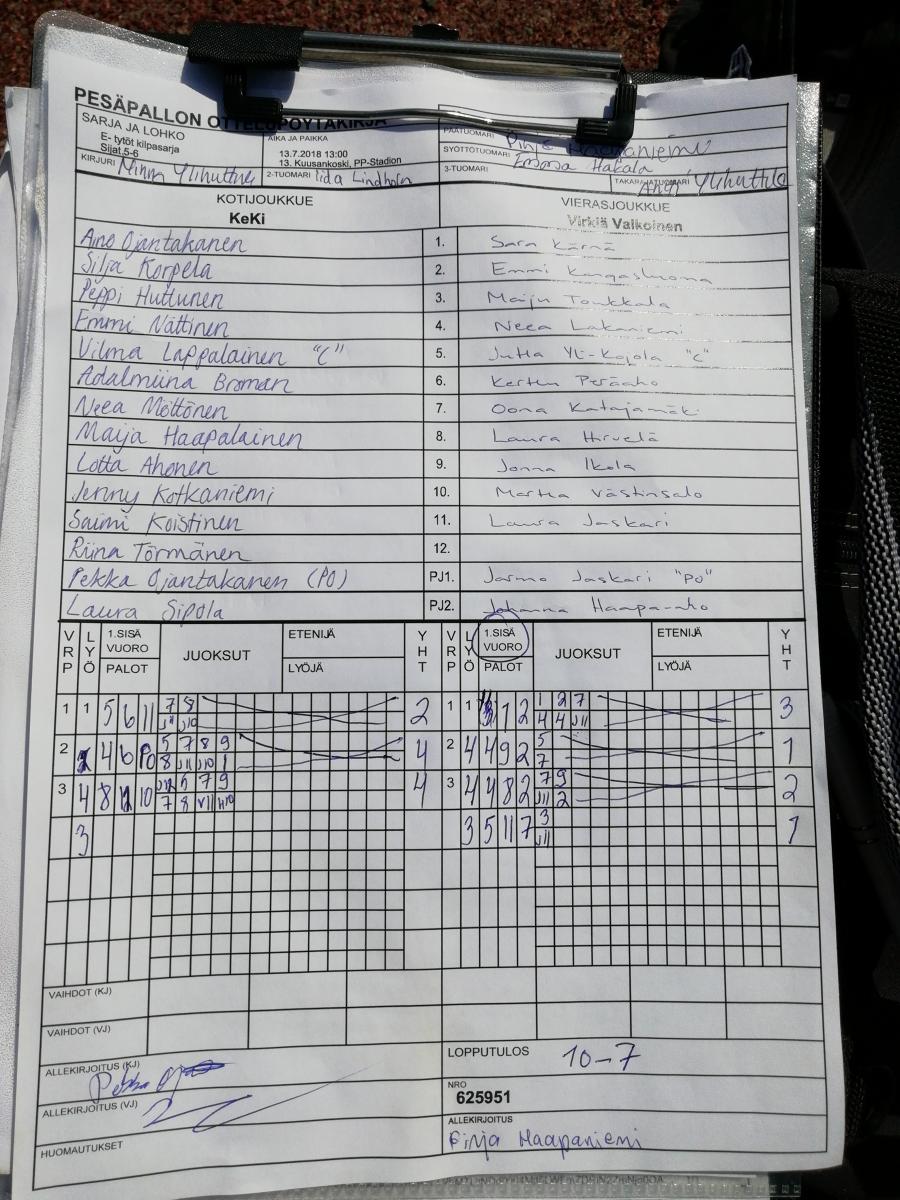 PESÄPALLON OTTELUPÖYTÄKIRJA
SARJA JA LOHKO
E- tytöt kilpasarja
Sijat 5-6
AIKA JA PAIKKA
13.7.2018 13:00
13. Kuusankoski, PP-Stadion
PÄÄTUOMARI Pinja Haapaniemi
SYÖTTÖTUOMARI Emma Hakala
KIRJURI Minna Ylihuttula
2-TUOMARI Iida Lindholm
3-TUOMARI
TAKARAJATUOMARI Antti Ylihuttula
KOTIJOUKKUE
KeKi
VIERASJOUKKUE
Virkiä Valkoinen
Aino Ojantakanen 1. Sara Kärnä
Silja Korpela 2. Emmi Kangasluoma
Peppi Huttunen 3. Maiju Toukkala
Emmi Nättinen 4. Neea Lakaniemi
Vilma Lappalainen "C" 5. Jutta Yli-Kojola "C"
Adalmiina Broman 6. Kerttu Peräaho
Neea Möttönen 7. Oona Katajamäki
Maija Haapalainen 8. Laura Hirvelä
Lotta Ahonen 9. Jonna Ikola
Jenny Kotkaniemi 10. Martta Västinsalo
Saimi Koistinen 11. Laura Jaskari
Riina Törmänen 12.
Pekka Ojantakanen (PO) PJ1. Jarmo Jaskari "PO"
Laura Sipola PJ2. Johanna Haapa-aho
VRP LYÖ 1.SISÄ VUORO PALOT JUOKSUT ETENIJÄ LYÖJÄ YHT VRP LYÖ 1.SISÄ VUORO PALOT JUOKSUT ETENIJÄ LYÖJÄ YHT
1 1 5 6 11 7 8 2 1 1 1 2 1 2 7 3
J11 J10 4 4 J11
2 4 6 10 5 7 8 9 4 2 4 4 9 2 5 1
8 J11 J10 1 7
3 4 8 10 J12 5 7 9 4 3 4 4 8 2 7 9 2
7 8 J10 J11 2
3 3 5 11 7 3 1
J11
VAIHDOT (KJ)
VAIHDOT (VJ)
ALLEKIRJOITUS (KJ) Pekka
LOPPUTULOS 10-7
NRO
625951
ALLEKIRJOITUS (VJ)
ALLEKIRJOITUS
Pinja Haapaniemi
HUOMAUTUKSET